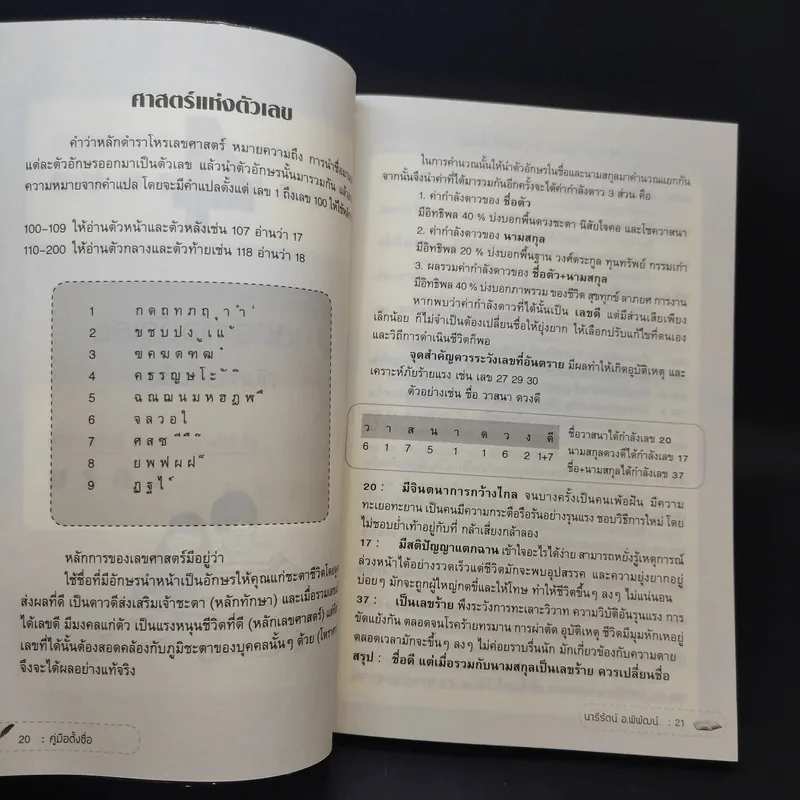 ศาสตร์แห่งตัวเลข
คำว่าหลักตำราโหรเลขศาสตร์ หมายความถึง การนำชื่อมา
แต่ละตัวอักษรออกมาเป็นตัวเลข แล้วนำตัวอักษรนั้นมารวมกัน
ความหมายจากคำแปล โดยจะมีคำแปลตั้งแต่ เลข 1 ถึงเลข 100
100-109 ให้อ่านตัวหน้าและตัวหลังเช่น 107 อ่านว่า 17
110-200 ให้อ่านตัวกลางและตัวท้ายเช่น 118 อ่านว่า 18
1 ก ด ถ ท ภ ฤ ุ า ำ ่
2 ข ช บ ป ง ู เ แ ้
3 ฃ ค ฆ ต ฑ ฒ ๋
4 ค ธ ร ญ ษ โ ะ ั ิ
5 ฉ ณ ฌ น ม ห ฮ ฎ ฬ ึ
6 จ ล ว อ ใ
7 ศ ส ซ ี ื ๊
8 ย พ ฟ ผ ฝ ็
9 ฏ ฐ ไ ์
หลักการของเลขศาสตร์มีอยู่ว่า
ใช้ชื่อที่มีอักษรนำหน้าเป็นอักษรให้คุณแก่ชะตาชีวิต
ส่งผลที่ดี เป็นดาวดีส่งเสริมเจ้าชะตา (หลักทักษา) และเมื่อรวม
ได้เลขดี มีมงคลแก่ตัว เป็นแรงหนุนชีวิตที่ดี (หลักเลขศาสตร์)
เลขที่ได้นั้นต้องสอดคล้องกับภูมิชะตาของบุคคลนั้นๆ ด้วย
จึงจะได้ผลอย่างแท้จริง
20 : คู่มือตั้งชื่อ
ในการคำนวณนั้นให้นำตัวอักษรในชื่อและนามสกุลมาคำนวณแยกกัน
จากนั้นจึงนำค่าที่ได้มารวมกันอีกครั้งจะได้ค่ากำลังดาว 3 ส่วน คือ
1. ค่ากำลังดาวของ ชื่อตัว
มีอิทธิพล 40 % บ่งบอกพื้นดวงชะตา นิสัยใจคอ และโชควาสนา
2. ค่ากำลังดาวของ นามสกุล
มีอิทธิพล 20 % บ่งบอกพื้นฐาน วงศ์ตระกูล ทุนทรัพย์ กรรมเก่า
3. ผลรวมค่ากำลังดาวของ ชื่อตัว+นามสกุล
มีอิทธิพล 40 % บ่งบอกภาพรวม ของชีวิต สุขทุกข์ ลาภยศ การงาน
หากพบว่าค่ากำลังดาวที่ได้นั้นเป็น เลขดี แต่มีส่วนเสียเพียง
เล็กน้อย ก็ไม่จำเป็นต้องเปลี่ยนชื่อให้ยุ่งยาก ให้เลือกปรับแก้ไขที่ตนเอง
และวิถีการดำเนินชีวิตก็พอ
จุดสำคัญควรระวังเลขที่อันตราย มีผลทำให้เกิดอุบัติเหตุ และ
เคราะห์ภัยร้ายแรง เช่น เลข 27 29 30
ตัวอย่างเช่น ชื่อ วาสนา ดวงดี
ว า ส น า ด ว ง ดี
6 1 7 5 1 1 6 2 1+7
ชื่อวาสนาได้กำลังเลข 20
นามสกุลดวงดีได้กำลังเลข 17
ชื่อ+นามสกุลได้กำลังเลข 37
20 : มีจินตนาการกว้างไกล จนบางครั้งเป็นคนเพ้อฝัน มีความ
ทะเยอทะยาน เป็นคนมีความกระตือรือร้นอย่างรุนแรง ชอบวิธีการใหม่ โดย
ไม่ชอบย่ำเท้าอยู่กับที่ กล้าเสี่ยงกล้าลอง
17 : มีสติปัญญาแตกฉาน เข้าใจอะไรได้ง่าย สามารถหยั่งรู้เหตุการณ์
ล่วงหน้าได้อย่างรวดเร็วแต่ชีวิตมักจะพบอุปสรรค และความยุ่งยากอยู่
บ่อยๆ มักจะถูกผู้ใหญ่กดขี่และให้โทษ ทำให้ชีวิตขึ้นๆ ลงๆ ไม่แน่นอน
37 : เป็นเลขร้าย พึงระวังการทะเลาะวิวาท ความวิบัติอันรุนแรง การ
ขัดแย้งกัน ตลอดจนโรคร้ายทรมาน การผ่าตัด อุบัติเหตุ ชีวิตมีมุมหักเหอยู่
ตลอดเวลามักจะขึ้นๆ ลงๆ ไม่ค่อยราบรื่นนัก มักเกี่ยวข้องกับความตาย
สรุป : ชื่อดี แต่เมื่อรวมกับนามสกุลเป็นเลขร้าย ควรเปลี่ยนชื่อ
นารีรัตน์ อ.พิพัฒน์ : 21